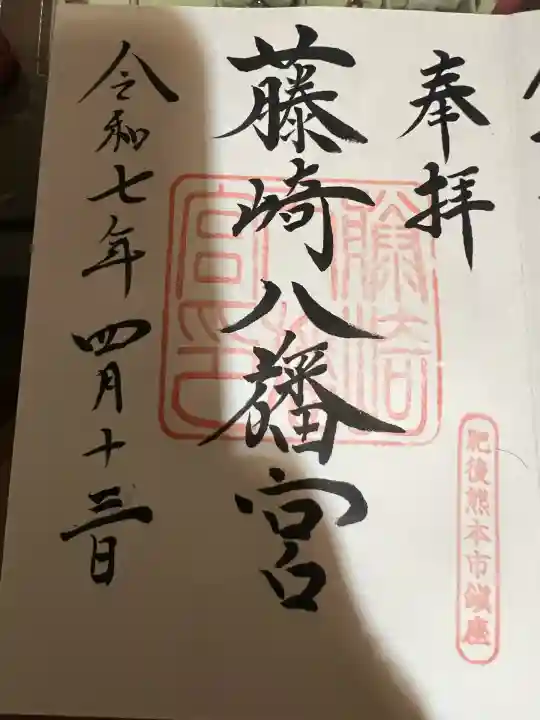 奉拝
肥後熊本市鎮座
藤崎八旛宮
令和七年四月十三日